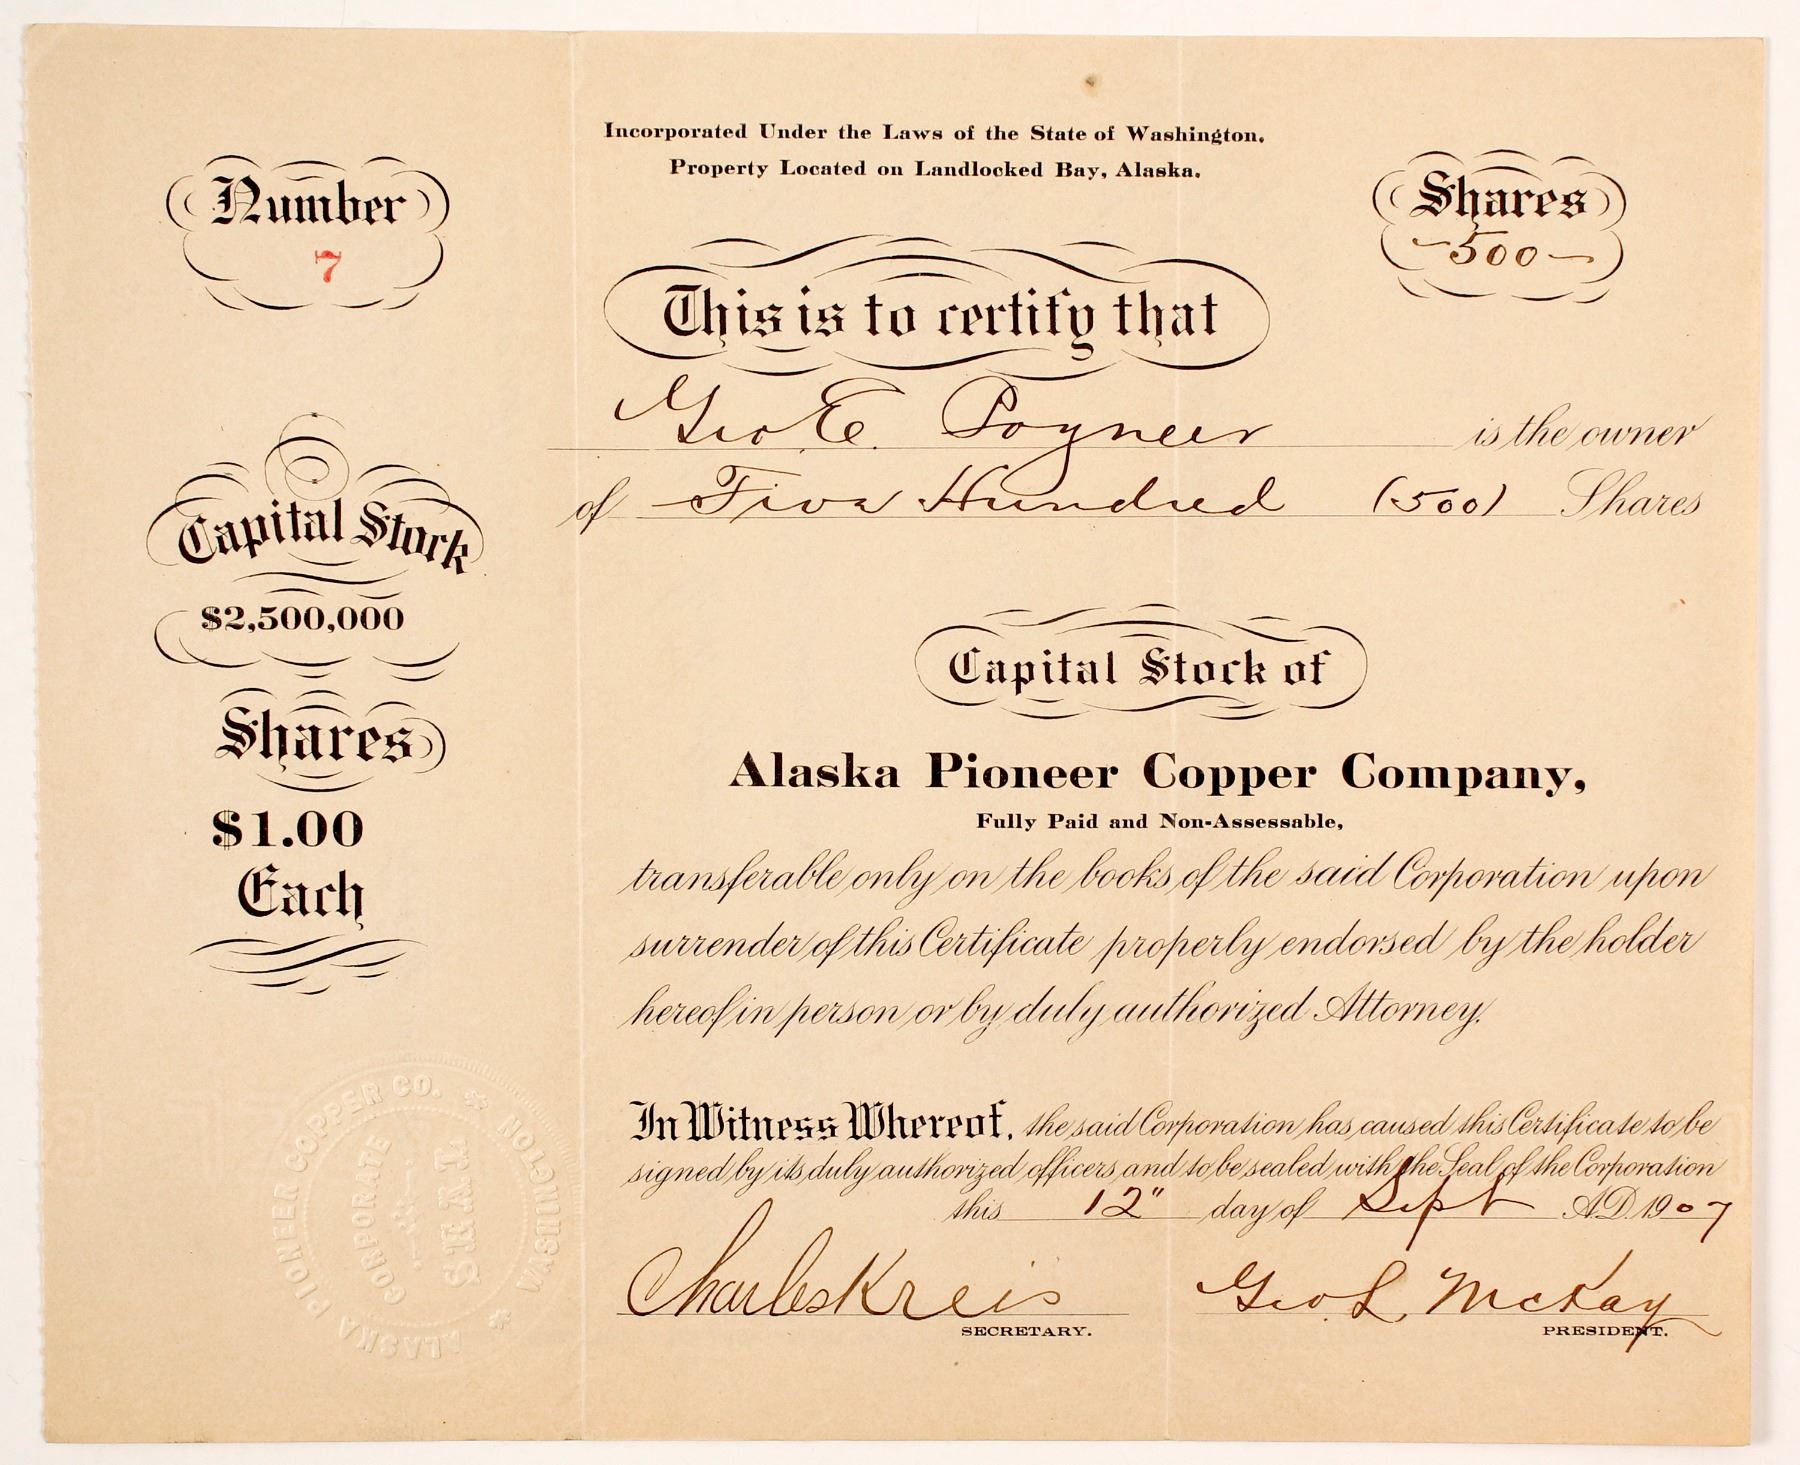 Incorporated Under the Laws of the State of Washington.
Property Located on Landlocked Bay, Alaska.
Number
7
Shares
500
This is to certify that
Geo. E. Poyneer is the owner
of Five Hundred (500) Shares
Capital Stock
$2,500,000
Shares
$1.00
Each
Capital Stock of
Alaska Pioneer Copper Company,
Fully Paid and Non-Assessable,
transferable only on the books of the said Corporation upon
surrender of this Certificate properly endorsed by the holder
hereof in person or by duly authorized Attorney.
In Witness Whereof, the said Corporation has caused this Certificate to be
signed by its duly authorized officers and to be sealed with the Seal of the Corporation
this 12" day of Sept A.D. 1907
Charles Kreis
SECRETARY.
Geo. L. McKay
PRESIDENT.
ALASKA PIONEER COPPER CO.
WASHINGTON
CORPORATE
SEAL